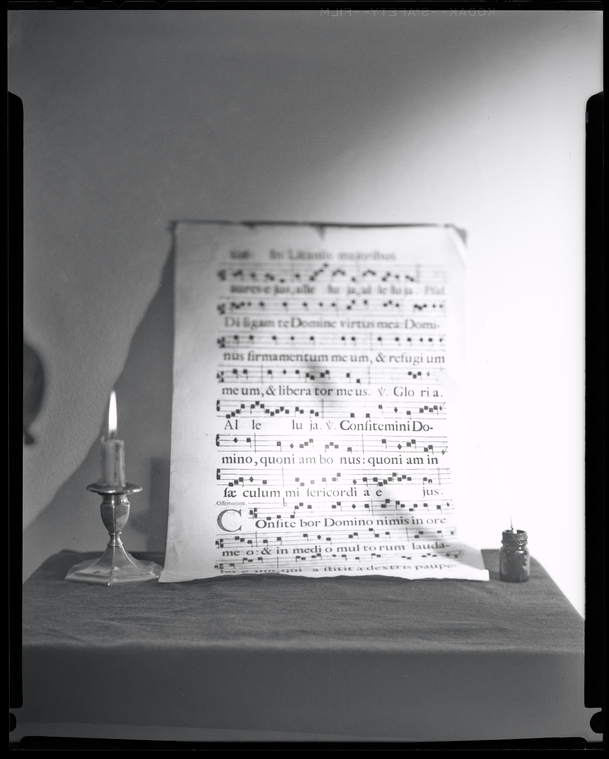 KODAK - SAFETY - FILM
In Litaniis maioribus.
aures e jus, alle lu ja, al le lu ja. Psal
Di ligam te Domine virtus mea: Domi-
nus firmamentum me um, & refugi um
me um, & libera tor me us. ℣. Glo ri a.
Al le lu ja. ℣. Confitemini Do-
mino, quoni am bo nus: quoni am in
sæ culum mi sericordi a e jus.
Offertorium.
C Onfite bor Domino nimis in ore
me o: & in medi o mul to rum lauda-
a stitit a dextris paupe-